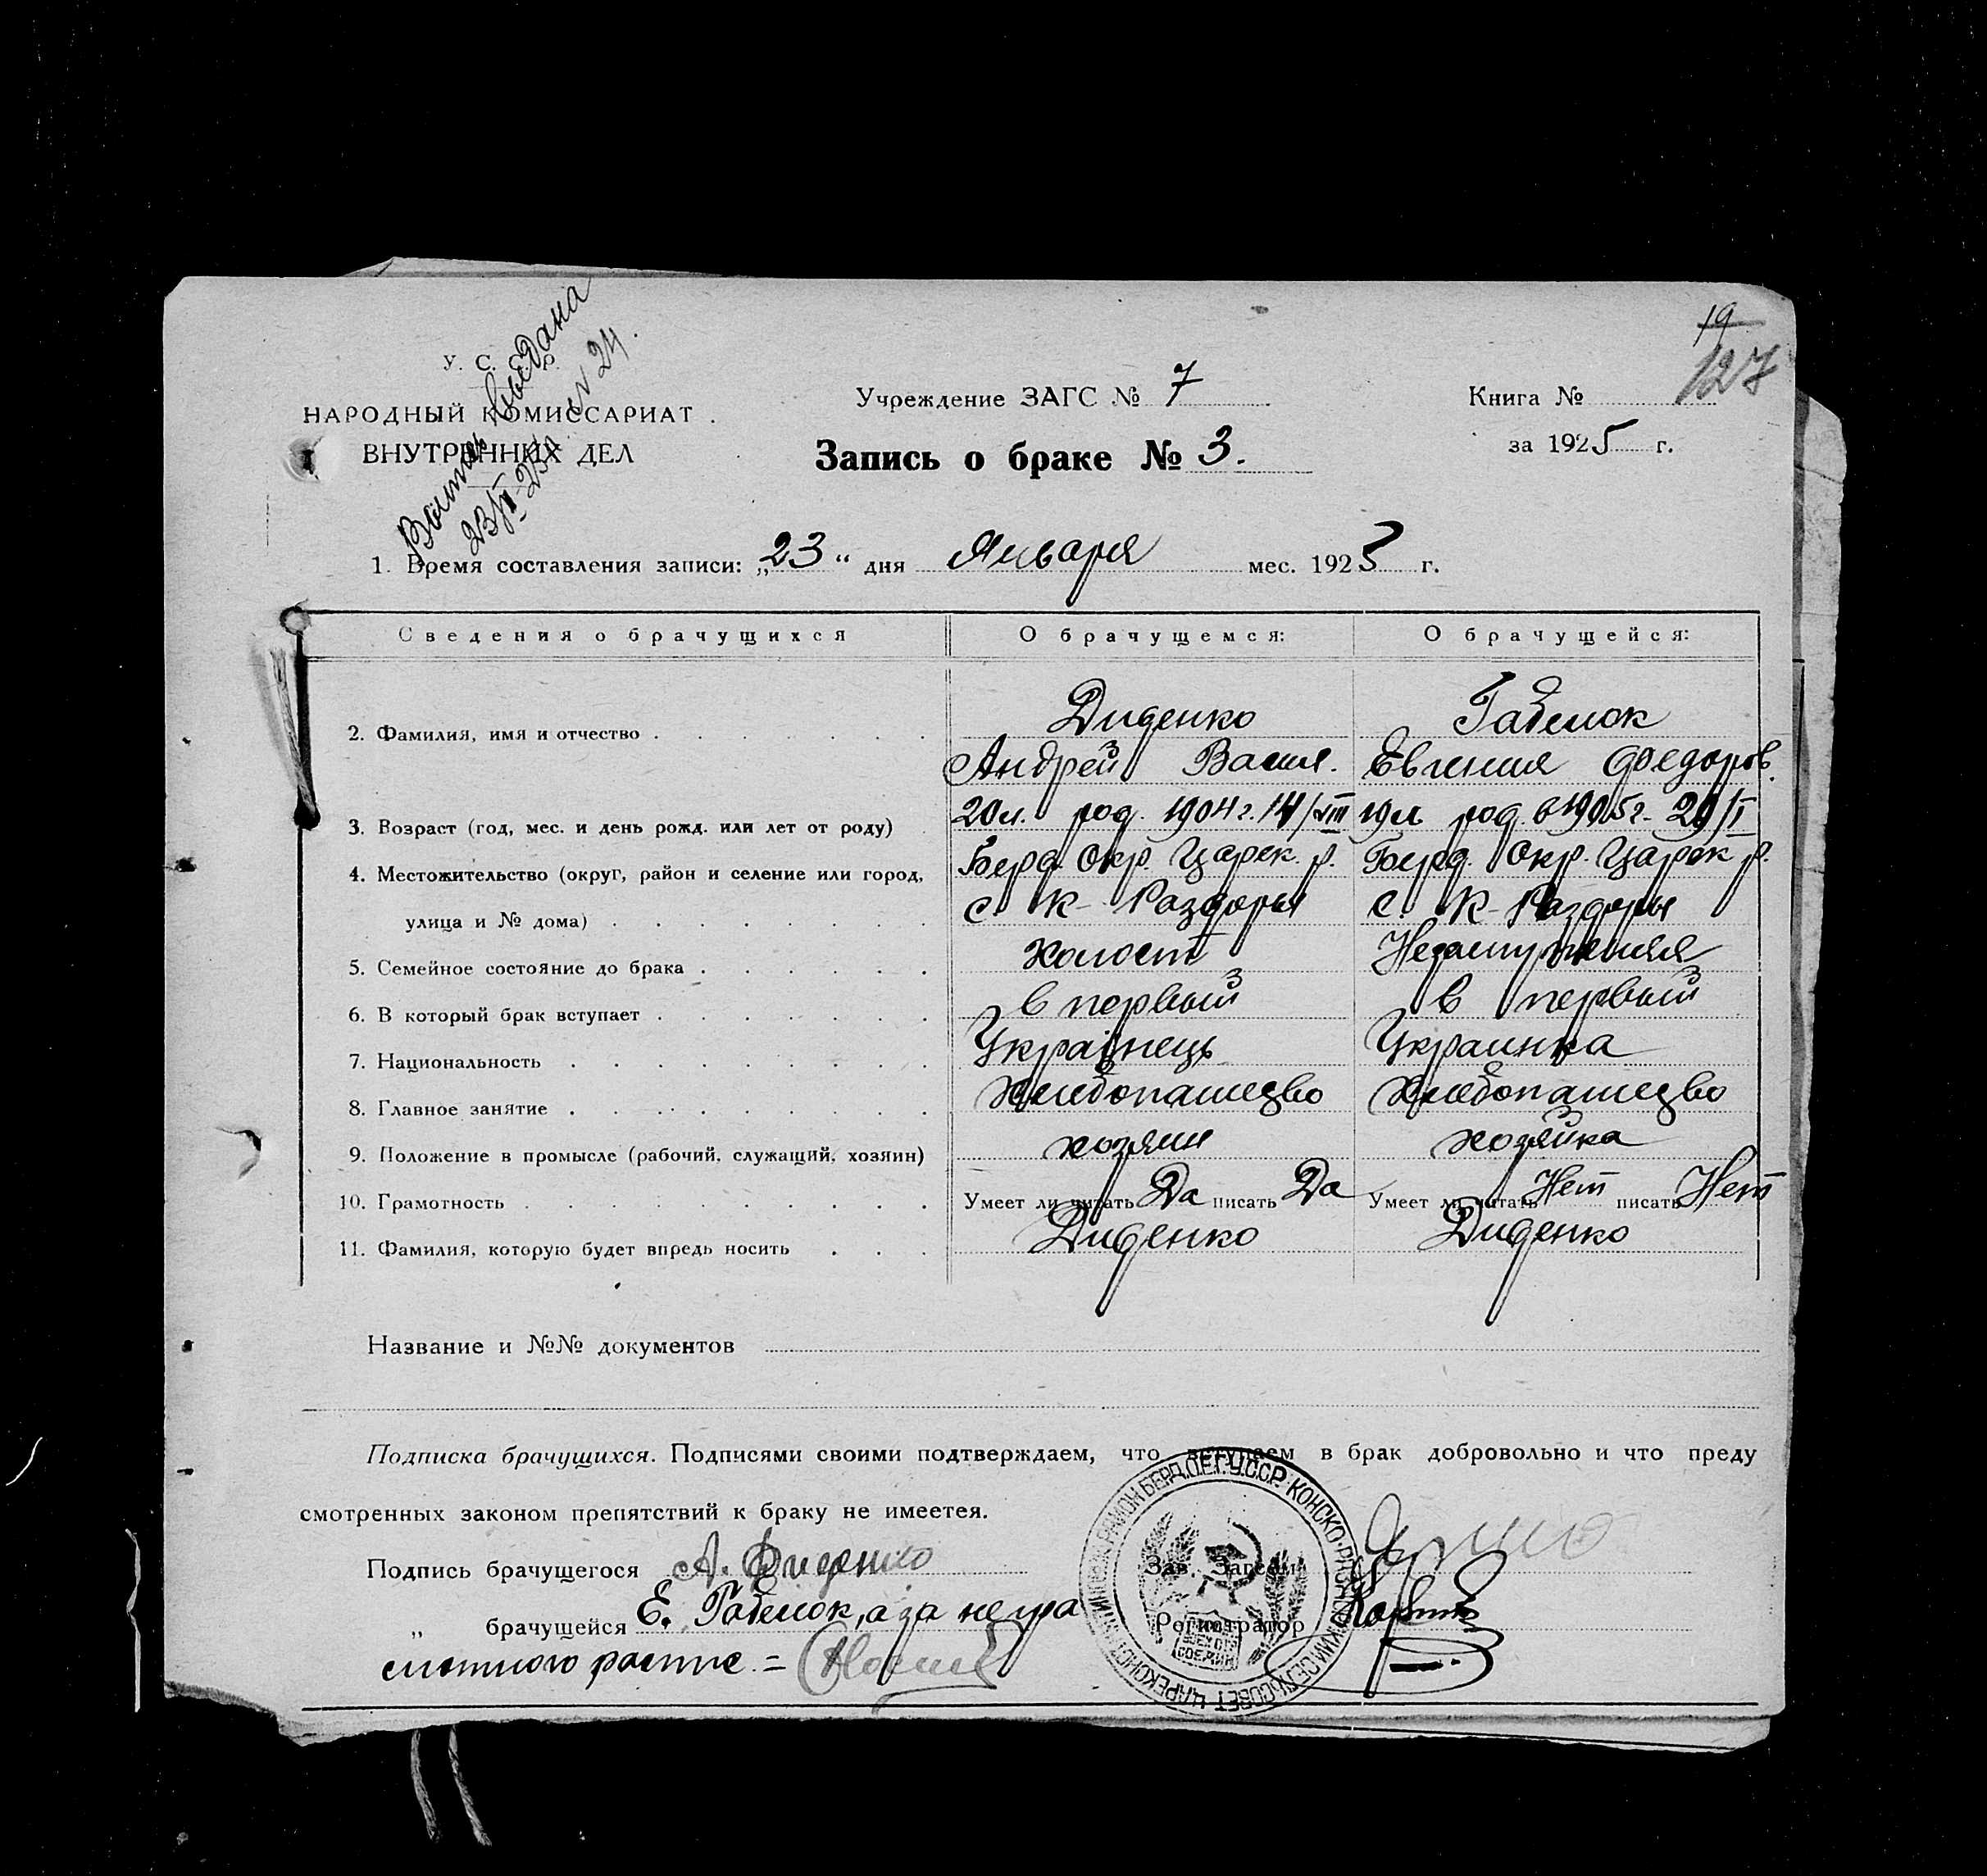 19
127
У. С. С. Р.
НАРОДНЫЙ КОМИССАРИАТ
ВНУТРЕННИХ ДЕЛ
Выпись выдана
23/I 25 г. № 24.
Учреждение ЗАГС № 7
Книга №
Запись о браке № 3.
за 1925 г.
1. Время составления записи: „23“ дня Января мес. 1925 г.
Сведения о брачущихся О брачущемся: О брачущейся:
2. Фамилия, имя и отчество Диденко
Андрей Васил. Евгения Федоров.
3. Возраст (год, мес. и день рожд. или лет от роду) 20 л. род. 1904 г. 14/VIII 19 л. род. в 1905 г. 20/I
4. Местожительство (округ, район и селение или город, Берд. Окр. Царек. р. Берд. Окр. Царек. р.
улица и № дома) с. К-Раздоры с. К-Раздоры
5. Семейное состояние до брака холост Незамужняя
6. В который брак вступает в первый в первый
7. Национальность Украінець Украинка
8. Главное занятие хлебопашество хлебопашество
9. Положение в промысле (рабочий, служащий, хозяин) хозяин хозяйка
10. Грамотность Умеет ли читать Да писать Да Умеет ли читать Нет писать Нет
11. Фамилия, которую будет впредь носить Диденко Диденко
Название и №№ документов
Подписка брачущихся. Подписями своими подтверждаем, что вступаем в брак добровольно и что преду
смотренных законом препятствий к браку не имеется.
Подпись брачущегося А. Диденко
Зав. Загсом
„ брачущейся Е. а за негра
Регистратор
мотного распис. =
ЦАРЕКОНСТАНТИНОВСК. РАЙОН БЕРД. ОКР. У.С.С.Р. КОНСКО-РАЗДОРСКИЙ СЕЛЬСОВЕТ